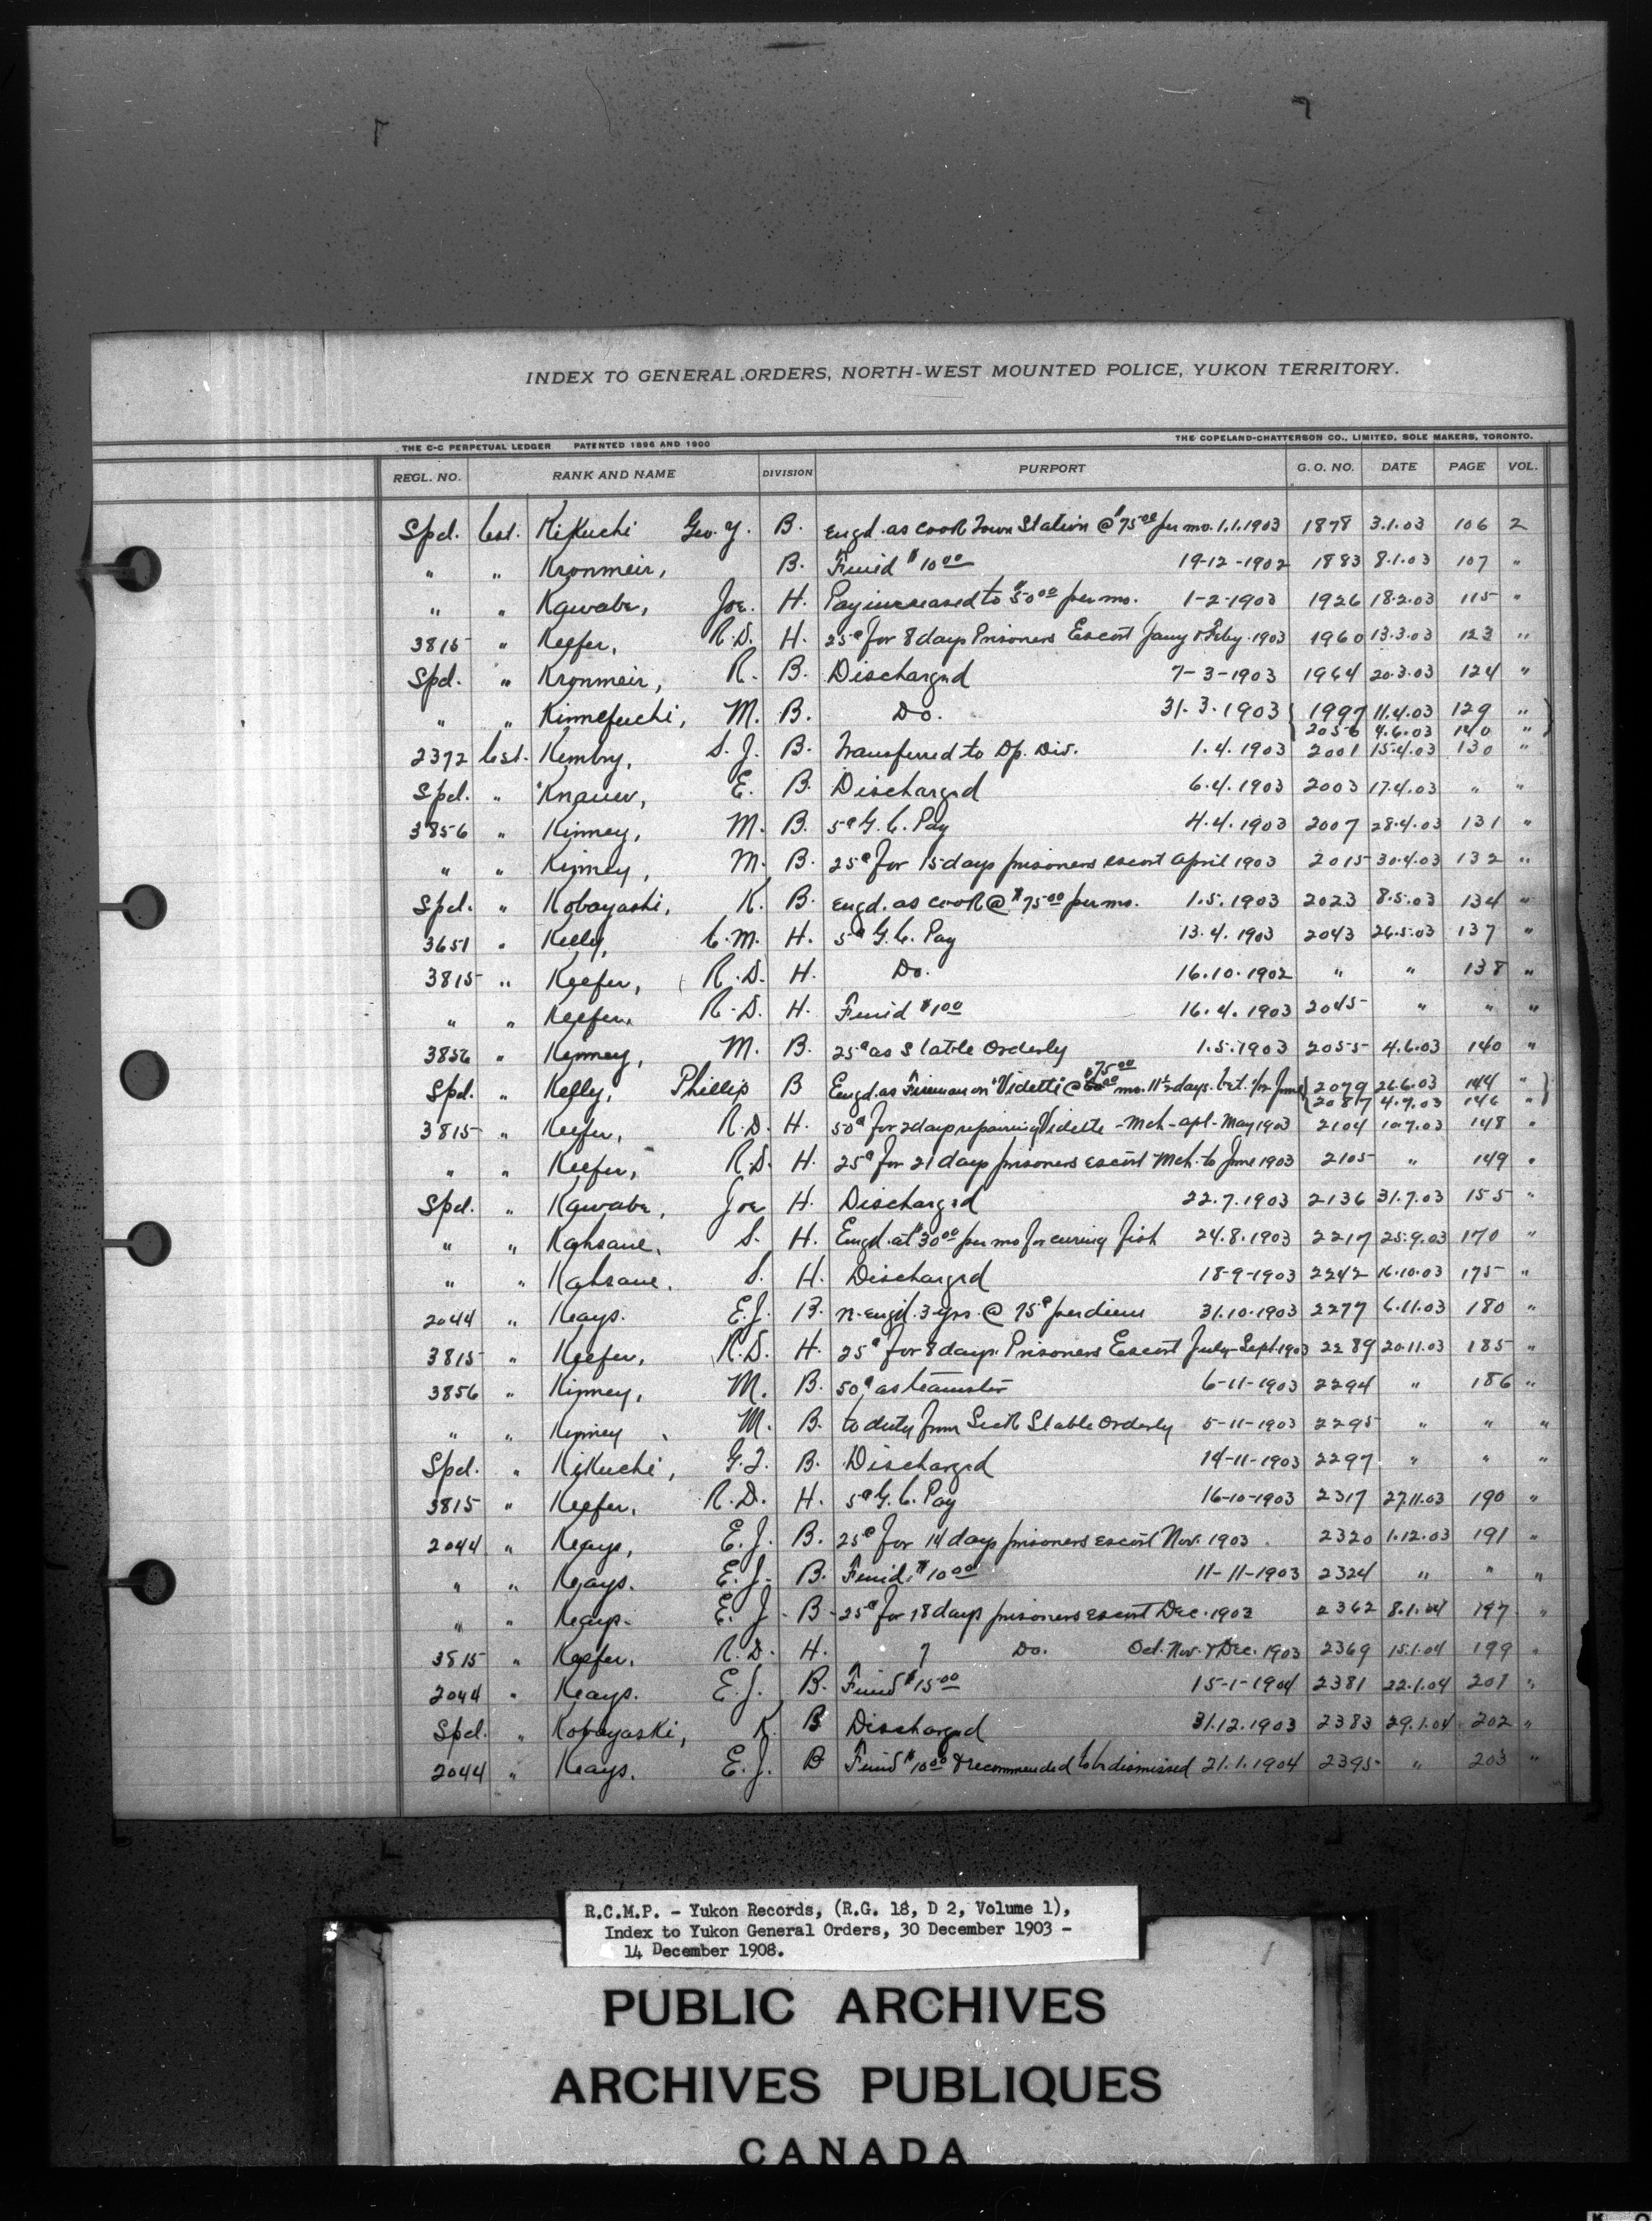 INDEX TO GENERAL ORDERS, NORTH-WEST MOUNTED POLICE, YUKON TERRITORY.
THE C-C PERPETUAL LEDGER PATENTED 1896 AND 1900 THE COPELAND-CHATTERSON CO., LIMITED, SOLE MAKERS, TORONTO.
REGL. NO. RANK AND NAME DIVISION PURPORT G.O. NO. DATE PAGE VOL.
Spcl. Cst. Kikuchi Geo. Y. B. Engd. as cook Town Station @ $75 00 per mo. 1.1.1903 1878 3.1.03 106 2
" " Kronmeir, B. Fined $10 00 19-12-1902 1883 8.1.03 107 "
" " Kawabe, Joe. H. Pay increased to $50 00 per mo. 1-2-1903 1926 18.2.03 115 "
3815 " Keefer, R.D. H. 25¢ for 8 days Prisoners Escort Jany & Feby. 1903 1960 13.3.03 123 "
Spcl. " Kronmeir, R. B. Discharged 7-3-1903 1964 20.3.03 124 "
" " Kinnefuchi, M. B. Do. 31.3.1903 { 1997 11.4.03 129 " }
2056 4.6.03 140 "
2372 Cst. Kembry, S.J. B. Transferred to Dp. Div. 1.4.1903 2001 15.4.03 130 "
Spcl. " Knauer, E. B. Discharged 6.4.1903 2003 17.4.03 " "
3856 " Kinney, M. B. 5¢ G.C. Pay 4.4.1903 2007 28.4.03 131 "
" " Kinney, M. B. 25¢ for 15 days prisoners escort April 1903 2015 30.4.03 132 "
Spcl. " Kobayashi, K. B. Engd. as cook @ $75 00 per mo. 1.5.1903 2023 8.5.03 134 "
3651 " Kelly, C.M. H. 5¢ G.C. Pay 13.4.1903 2043 26.5.03 137 "
3815 " Keefer, R.D. H. Do. 16.10.1902 " " 138 "
" " Keefer, R.D. H. Fined $1 00 16.4.1903 2045 " " "
3856 " Kenney, M. B. 25¢ as Stable Orderly 1.5.1903 2055 4.6.03 140 "
Spcl. " Kelly, Phillip B Engd. as Fireman on "Vidette" @ $75 00 mo. 11½ days. bet. 1/12 June { 2079 26.6.03 144 " }
2087 4.7.03 146 "
3815 " Keefer, R.D. H. 50¢ for 2 days repairing Vidette - Mch - Apl - May 1903 2104 10.7.03 148 "
" " Keefer, R.D. H. 25¢ for 21 days prisoners escort Mch. to June 1903 2105 " 149 "
Spcl. " Kawabe, Joe H. Discharged 22.7.1903 2136 31.7.03 155 "
" " Kahsane, S. H. Engd. at $30 00 per mo for curing fish 24.8.1903 2217 25.9.03 170 "
" " Kahsane. S. H. Discharged 18-9-1903 2242 16.10.03 175 "
2044 " Keays. E.J. B. n-engd. 3 yrs. @ 75¢ per diem 31.10.1903 2277 6.11.03 180 "
3815 " Keefer, R.D. H. 25¢ for 8 days Prisoners Escort July-Sept. 1903 2289 20.11.03 185 "
3856 " Kinney, M. B. 50¢ as teamster 6-11-1903 2294 " 186 "
" " Kinney, M. B. to duty from Sick Stable Orderly 5-11-1903 2295 " " "
Spcl. " Kikuchi, G.Y. B. Discharged 14-11-1903 2297 " " "
3815 " Keefer, R.D. H. 5¢ G.C. Pay 16-10-1903 2317 27.11.03 190 "
2044 " Keays, E.J. B. 25¢ for 14 days prisoners escort Nov. 1903 2320 1.12.03 191 "
" " Keays. E.J. B. Fined $10 00 11-11-1903 2324 " " "
" " Keays. E.J. B. 25¢ for 18 days prisoners escort Dec. 1903 2362 8.1.04 197 "
3815 " Keefer. R.D. H. 7 Do. Oct. Nov. & Dec. 1903 2369 15.1.04 199 "
2044 " Keays. E.J. B. Fined $15 00 15-1-1904 2381 22.1.04 201 "
Spcl. " Kobayaski, K. B Discharged 31.12.1903 2383 29.1.04 202 "
2044 " Keays. E.J. B Fined $10 00 & recommended to be dismissed 21.1.1904 2395 " 203 "
R.C.M.P. - Yukon Records, (R.G. 18, D 2, Volume 1),
Index to Yukon General Orders, 30 December 1903 -
14 December 1908.
PUBLIC ARCHIVES
ARCHIVES PUBLIQUES
CANADA